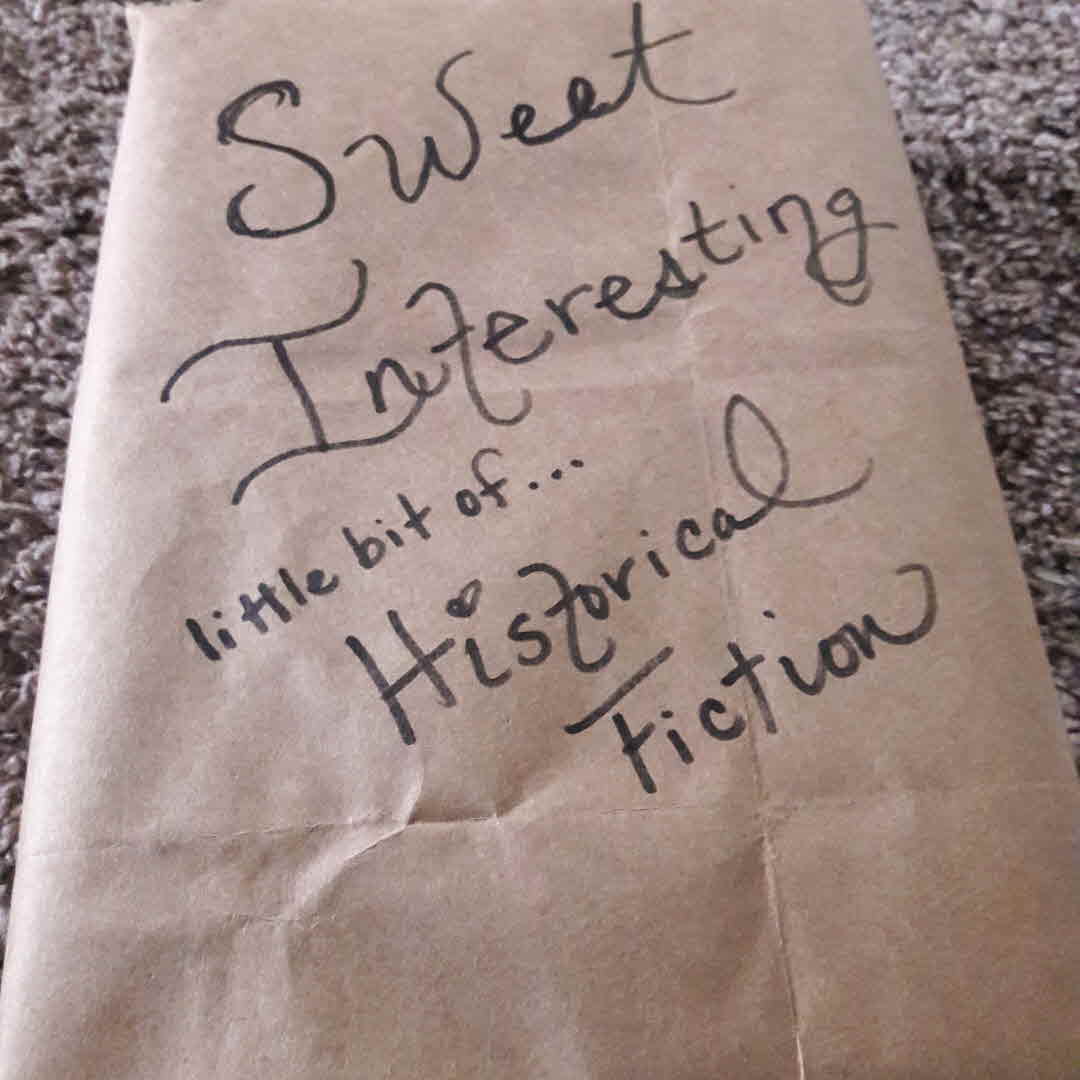 Sweet
Interesting
little bit of...
Historical
Fiction